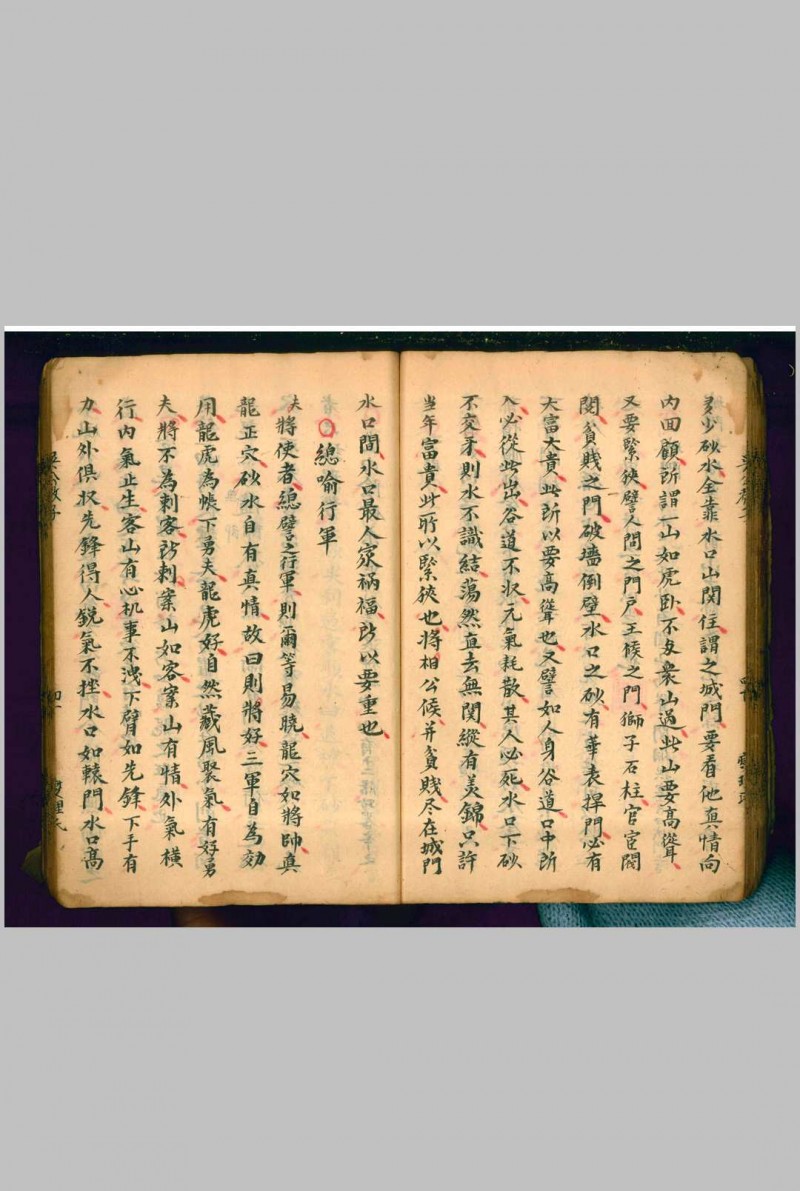 多少砂水全靠水口山関往謂之城門要看他真情向
内回顧所謂一山如虎卧不女衆山過此山要高聳
又要緊狹譬人間之門戸王候之門獅子石柱官宦閥
閱貧賤之門破墻倒壁水口之砂有華表捍門必有
大富大貴此所以要高聳也又譬如人身谷道口中所
入必從此出谷道不収元氣耗散其人必死水口下砂
不交牙則水不識結蕩然直去無関縱有美錦只許
当年富貴此所以緊狹也將相公候并貧賤尽在城門
水口間水口最人家禍福所以要重也
總喻行軍
夫將使者總譬之行軍則爾等易曉龍穴如將帥真
龍正穴砂水自有真情故曰則將好三軍自為効
用龍虎為帳下勇夫龍虎好自然藏風聚氣有好勇
夫將不為刺客所刺案山如客案山有情外氣横
行内氣止生客山有心机事不洩下臂如先鋒下手有
力山外俱収先鋒得人銳氣不挫水口如轅門水口高